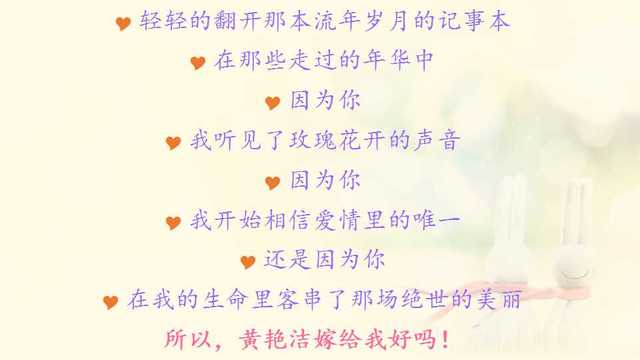 轻轻的翻开那本流年岁月的记事本
在那些走过的年华中
因为你
我听见了玫瑰花开的声音
因为你
我开始相信爱情里的唯一
还是因为你
在我的生命里客串了那场绝世的美丽
所以，黄艳洁嫁给我好吗！